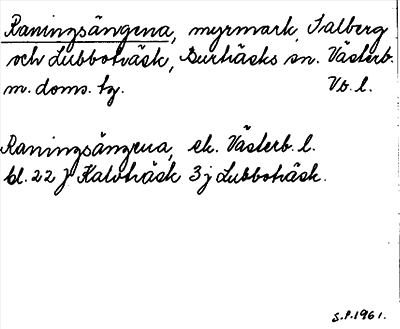 Raningsängena, myrmark, Salberg
och Lubboträsk, Burträsks sn. Västerb.
m. doms. hg. Vb. l.
Raningsängena, ek. Västerb. l.
bl. 22 J Kalvträsk 3 j Lubboträsk.
S.P. 1961.